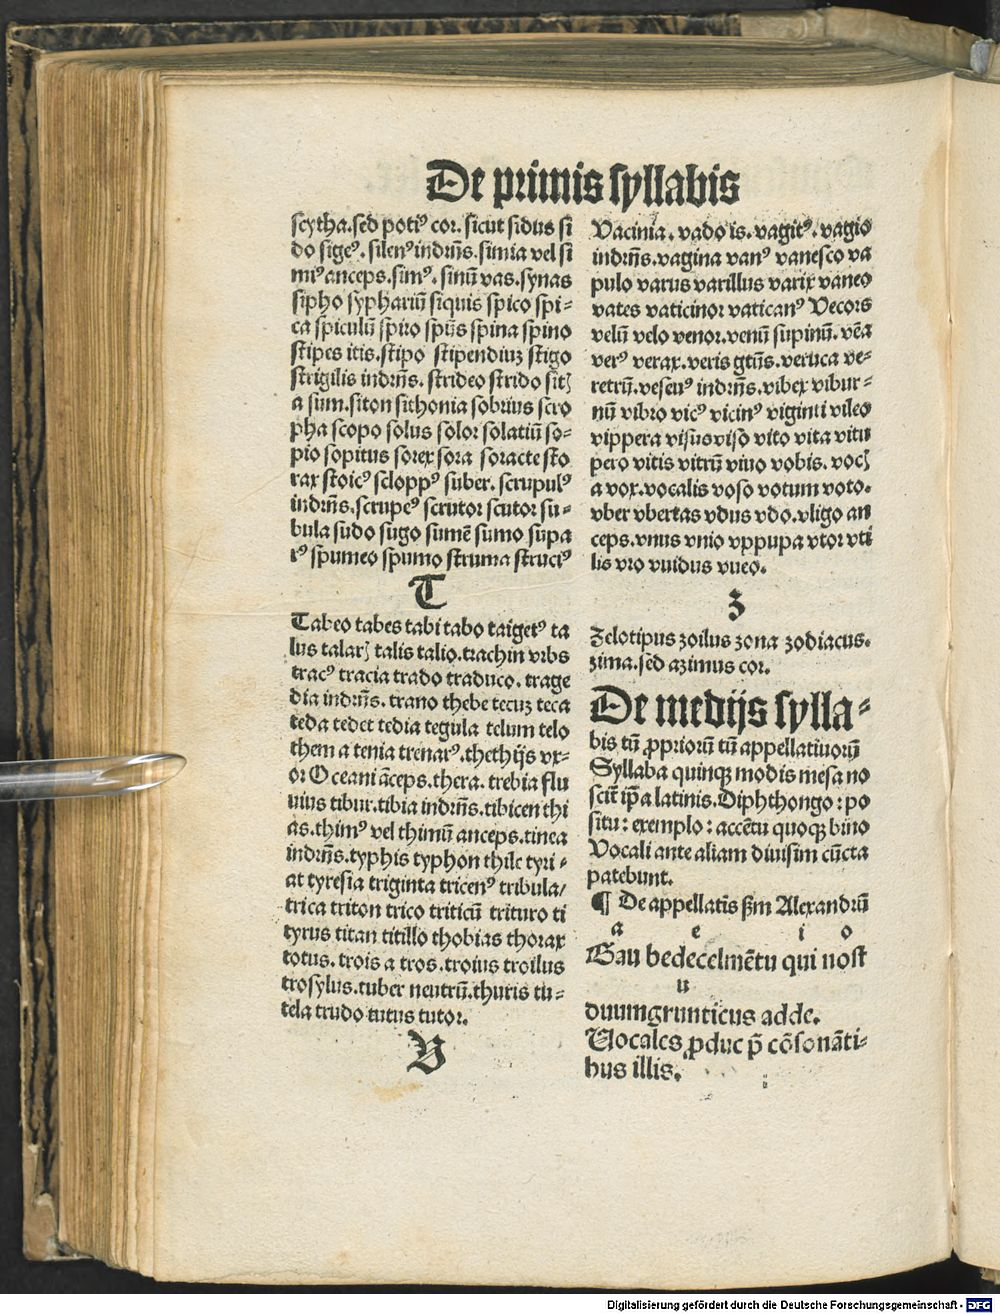 De primis syllabis
scytha.sed potiꝰ cor. sicut sidus si
do sigeꝰ. silenꝰ indrñs. simia vel si
miꝰ anceps. simꝰ. sinũ vas. synas
sipho syphariũ siquis spico spi-
ca spiculũ spiro spũs spina spino
stipes itis. stipo stipendiuz stigo
strigilis indrñs. strideo strido sitꝫ
a sum. siton sithonia sobrius scro
pha scopo solus solor solatiũ so-
pio sopitus sorex sora soracte sto
rax stoicꝰ scloppꝰ suber. scrupulꝰ
indrñs. scrupeꝰ scrutor scutor su-
bula sudo sugo sumẽ sumo supa
rꝰ spumeo spumo struma strucꝰ
T
Tabeo tabes tabi tabo taigetꝰ ta
lus talarꝫ talis talio. trachin vrbs
tracꝰ tracia trado traduco. trage
dia indrñs. trano thebe tecuz teca
teda tedet tedia tegula telum telo
them a tenia trenarꝰ. thethijs vx-
or Oceani ãceps. thera. trebia flu
uius tibur. tibia indrñs. tibicen thi
as. thimꝰ vel thimũ anceps. tinea
indrñs. typhis typhon thile tyri-
at tyresia triginta tricenꝰ tribula/
trica triton trico triticũ trituro ti
tyrus titan titillo thobias thorax
totus. trois a tros. troius troilus
trosylus. tuber neutrũ. thuris tu-
tela trudo tutus tutor.
V
Vacinia. vado is. vagitꝰ. vagio
indrñs. vagina vanꝰ vanesco va
pulo varus varillus varix vaneo
vates vaticinor vaticanꝰ Vecors
velũ velo venor. venũ supinũ. vẽa
verꝰ verax. veris gtũs. veruca ve-
retrũ. vesenꝰ indrñs. vibex vibur-
nũ vibro vicꝰ vicinꝰ viginti vileo
vippera visus viso vito vita vitu
pero vitis vitrũ viuo vobis. vocꝫ
a vox. vocalis voso votum voto.
vber vbertas vdus vdo. vligo an
ceps. vnus vnio vppupa vtor vti
lis vro vuidus vueo.
Z
Zelotipus zoilus zona zodiacus.
zima. sed azimus cor.
De medijs sylla-
bis tũ ꝓpriorũ tũ appellatiuorũ
Syllaba quinqꝫ modis mesa no
scit̃ ip̃a latinis. Diphthongo: po
situ: exemplo: accẽtu quoqꝫ bino
Vocali ante aliam diuisim cũcta
patebunt.
¶ De appellatis ẞm Alexandrũ
a e i o
Bau bedecelmẽtu qui nost
u
duumgrunticus adde.
Vocales ꝓduc p̃ cõsonãti-
bus illis.
Digitalisierung gefördert durch die Deutsche Forschungsgemeinschaft - DFG